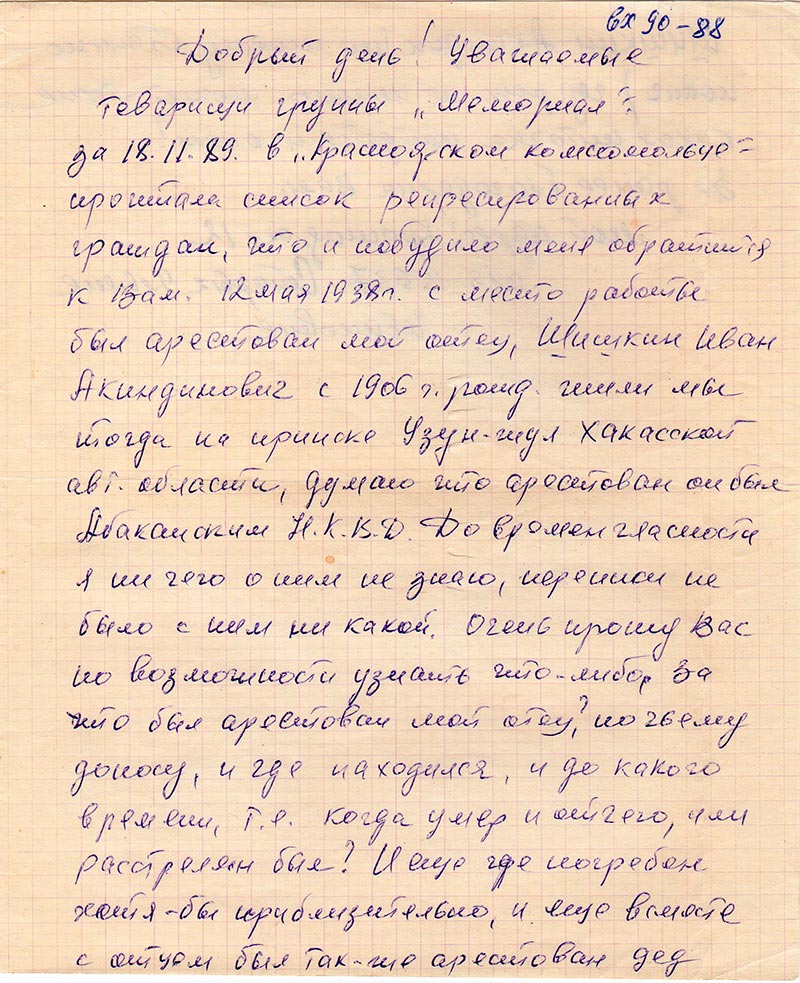 вх 90-88
Добрый день! Уважаемые
товарищи группы „Мемориал".
за 18.11.89. в „Красноярском комсомольце"
прочитала список репресированных
граждан, что и побудило меня обратится
к Вам. 12 мая 1938 г. с место работы
был арестован мой отец, Шишкин Иван
Акиндинович с 1906 г. рожд. жили мы
тогда на прииске Узун-жул Хакасской
авт. области, думаю что арестован он был
Абаканским Н.К.В.Д. До времен гласности
я ни чего о ним не знаю, переписи не
было с ним ни какой. Очень прошу Вас
по возможности узнать что-либо, за
что был арестован мой отец?, по чьему
доносу, и где находился, и до какого
времени, т.е. когда умер и отчего, или
расстрелян был? И еще где погребен
хотя-бы приблизительно, и еще вместе
с отцом был так-же арестован дед